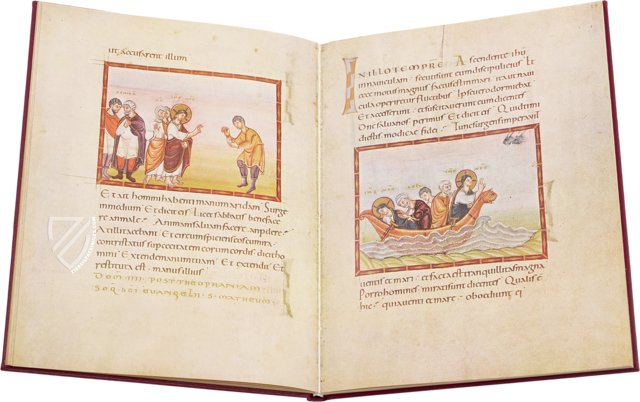 ut accusarent illum
Et ait homini habenti manum aridam. Surge
in medium. Et dicit eis. Licet sabbatis benefacere
an male. Animam salvam facere an perdere
At illi tacebant. Et circumspiciens eos cum ira
contristatus super cecitatem cordis eorum dicit ho
mini. Extende manum tuam. Et extendit. Et
restituta est manus illius
DOM IIII POST THEOPHANIAM
EVANGELII S MATHEUM
IN ILLO TEMPRE Ascendente ihu
in naviculam. secuti sunt eum discipuli eius. Et
ecce motus magnus factus est in mari. ita ut navi
cula operiretur fluctibus. Ipse vero dormiebat
Et accesserunt. et suscitaverunt eum dicentes
Dne salva nos perimus. Et dicit eis. Quid timi
di estis modicae fidei. Tunc surgens imperavit
ventis et mari. et facta est tranquillitas magna
Porro homines mirati sunt dicentes. Qualis e
hic. quia venti et mare oboediunt ei